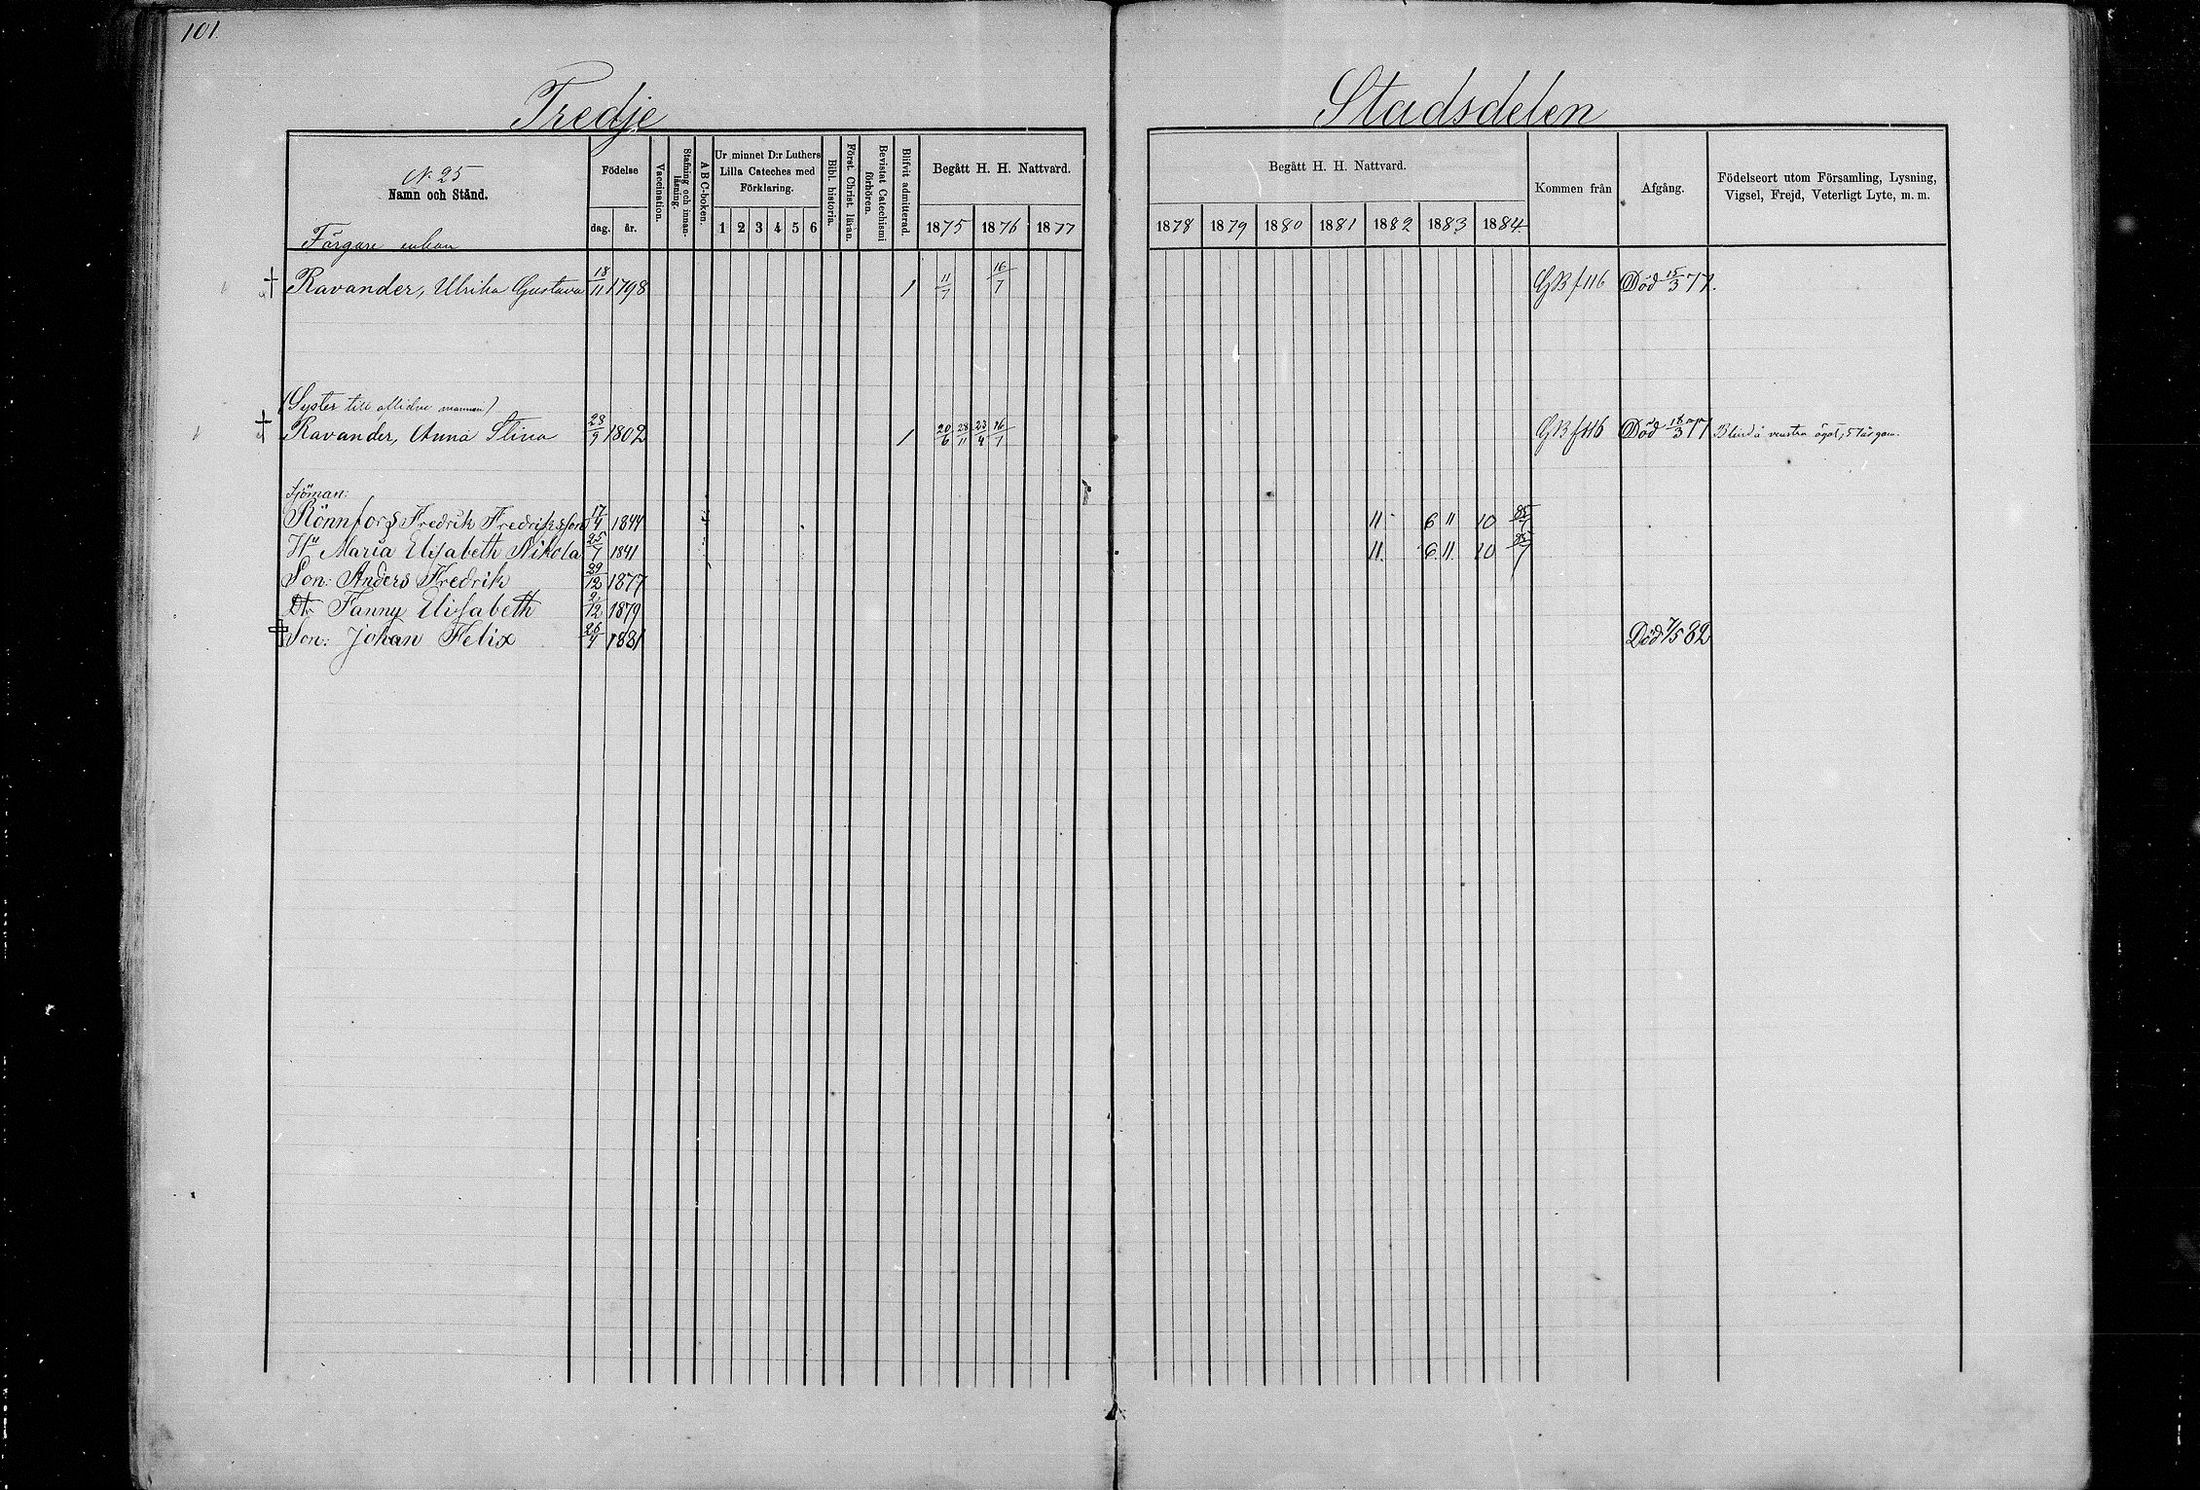 101.
Tredje Stadsdelen
N. 25
Namn och Stånd.
Födelse
dag. år.
Vaccination.
Stafning och innanläsning.
A B C-boken.
Ur minnet D:r Luthers Lilla Cateches med Förklaring.
1 2 3 4 5 6
Bibl. historia.
Först. Christ. läkan.
Bevistat Catechismi förhören.
Blifvit admitterad.
Begått H. H. Nattvard.
1875 1876 1877
Begått H. H. Nattvard.
1878 1879 1880 1881 1882 1883 1884
Kommen från
Afgång.
Födelseort utom Församling, Lysning, Vigsel, Frejd, Veterligt Lyte, m. m.
Färgare enkan
Ravander, Ulrika Gustava 18/11 1798 1 11/7 16/7 GB f 116 Död 15/3 77.
(Syster till aflidne mannen)
Ravander, Anna Stina 23/9 1802 1 20/6 28/11 23/4 16/7 GB f 116 Död 18/3 77 Blind å venstra ögat,
Sjöman:
Rönnfors Fredrik Fredriksson 17/4 1844 11 6 11 10 85/7
Hu Maria Elisabeth Nikola 25/7 1841 11. 6. 11. 10 85/7
Son: Anders Fredrik 29/12 1877
Dtr Fanny Elisabeth 2/12 1879
Son: Johan Felix 26/4 1881 Död 7/5 82